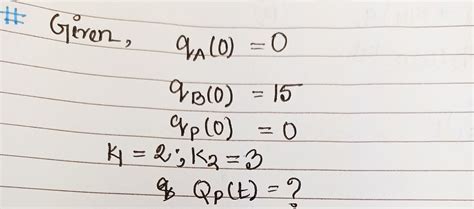 # Given, q_A(0) = 0
q_B(0) = 15
q_P(0) = 0
K_1 = 2 ; K_2 = 3
Q_P(t) = ?